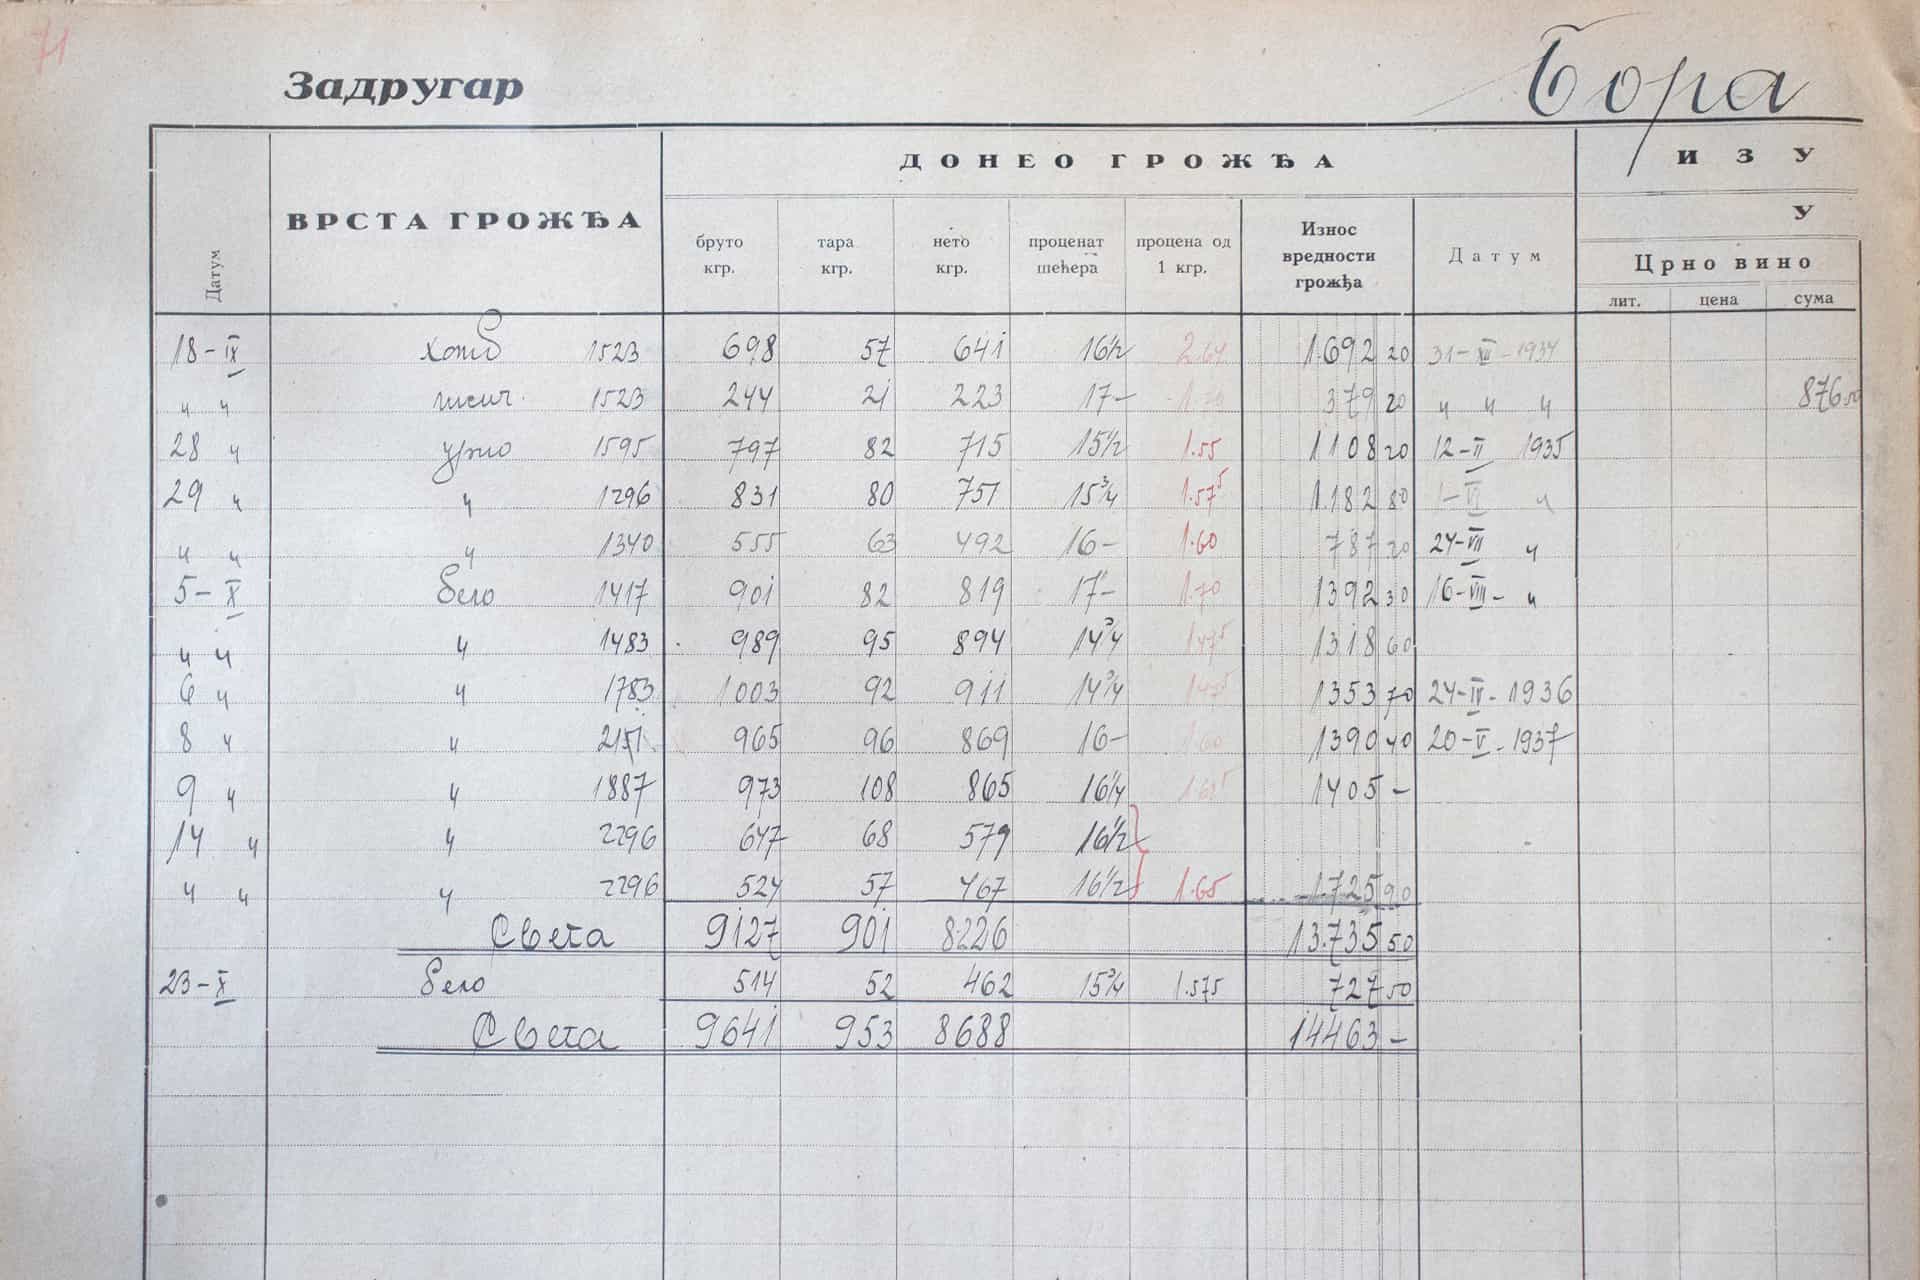 71
Задругар Бора
ДОНЕО ГРОЖЂА ИЗУ
У
Датум ВРСТА ГРОЖЂА бруто кгр. тара кгр. нето кгр. проценат шећера процена од 1 кгр. Износ вредности грожђа Датум Црно вино
лит. цена сума
18-IX 1523 698 57 641 16 1/2 2.64 1.692 20 31-XII-1934
" " 1523 244 21 223 17- 1.70 379 20 " " " 876 50
28 " црно 1595 797 82 715 15 1/2 1.55 1108 20 12-II 1935
29 " " 1296 831 80 751 15 3/4 1.57 5 1.182 80 1-VI "
" " " 1340 555 63 492 16- 1.60 787 20 24-VII "
5-X бело 1417 901 82 819 17- 1.70 1392 30 16-VIII- "
" " " 1483 989 95 894 14 3/4 1.47 5 1318 60
6 " " 1783 1003 92 911 14 3/4 1.47 5 1353 70 24-III-1936
8 " " 2151 965 96 869 16- 1.60 1390 40 20-V-1937
9 " " 1887 973 108 865 16 1/4 1.62 5 1405 -
14 " " 2296 647 68 579 16 1/2
" " " 2296 524 57 467 16 1/2 1.65 1.725 90
Свега 9127 901 8226 13.735 50
23-X бело 514 52 462 15 3/4 1.575 727 50
Свега 9641 953 8688 14463 -